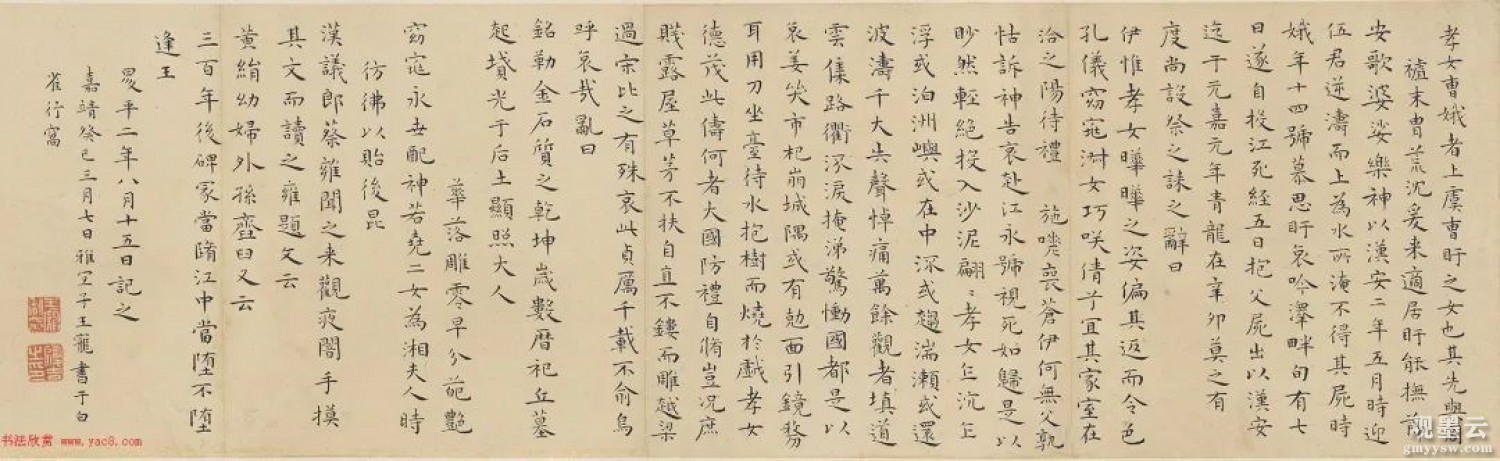 孝女曹娥者上虞曹盱之女也其先與周
禠末胄荒沈爰来適居盱能撫節
安歌婆娑樂神以漢安二年五月時迎
伍君逆濤而上為水所淹不得其屍時
娥年十四號慕思盱哀吟澤畔旬有七
日遂自投江死經五日抱父屍出以漢安
迄于元嘉元年青龍在辛卯莫之有
度尚設祭之誄之辭曰
伊惟孝女曄曄之姿偏其返而令色
孔儀窈窕淑女巧咲倩兮冝其家室在
洽之陽待禮 施嗟喪蒼伊何無父孰
怙訴神告哀赴江永號視死如歸是以
眇然輕絕投入沙泥翩〻孝女乍沉乍
浮或泊洲嶼或在中深或趨湍瀬或還
波濤千夫失聲悼痛萬餘觀者填道
雲集路衢泳淚掩涕驚慟國都是以
哀姜哭市杞崩城隅或有尅面引鏡剺
耳用刀坐臺待水抱樹而燒於戲孝女
德茂此儔何者大國防禮自脩豈况庶
賤露屋草芳不扶自直不鏤而雕越梁
過宋比之有殊哀此貞厲千載不俞烏
呼哀哉亂曰
銘勒金石質之乾坤歲數曆祀丘墓
起墳光于后土顯照夫人
華落雕零早分葩艷
窈窕永世配神若堯二女為湘夫人時
彷彿以貽後昆
漢議郎蔡雍聞之来觀夜闇手摸
其文而讀之雍題文云
黄絹幼婦外孫齏臼又云
三百年後碑冢當隋江中當堕不堕
逢王
昪平二年八月十五日記之
嘉靖癸巳三月七日雅冝子王寵書于白
雀行窩
书法欣赏 www.yac8.com
观墨云
gmyysw.com